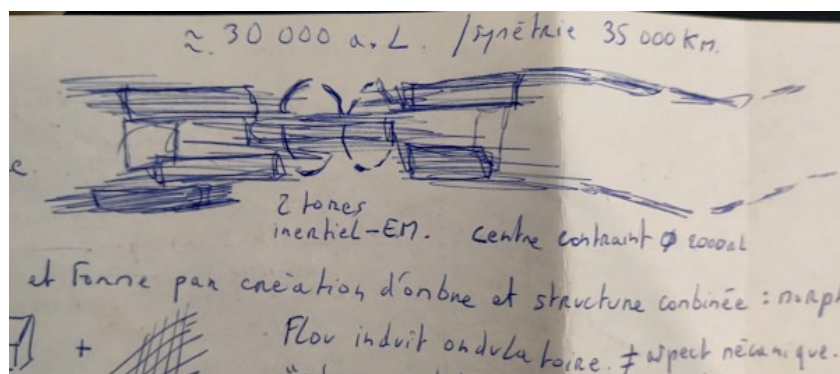 ≈ 30 000 a.L. / symétrie 35 000 Km.
e.
2 tores
inertiel-EM. centre contraint ϕ 2000aL
et Forme par création d'ombre et structure combinée : morph
+ Flou induit ondulatoire. ≠ aspect mécanique.